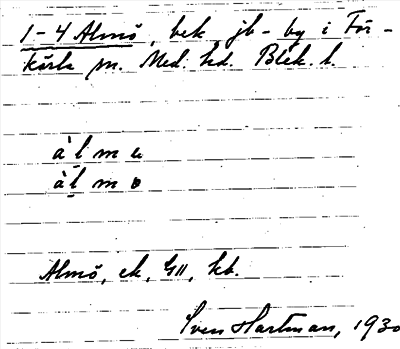 1-4 Almö, bek. jb-by i För-
kärla sn. Med. hd. Blek. l.
àl m ɯ
àl m o
Almö, ek, GII, kb.
Sven Hartman, 1930